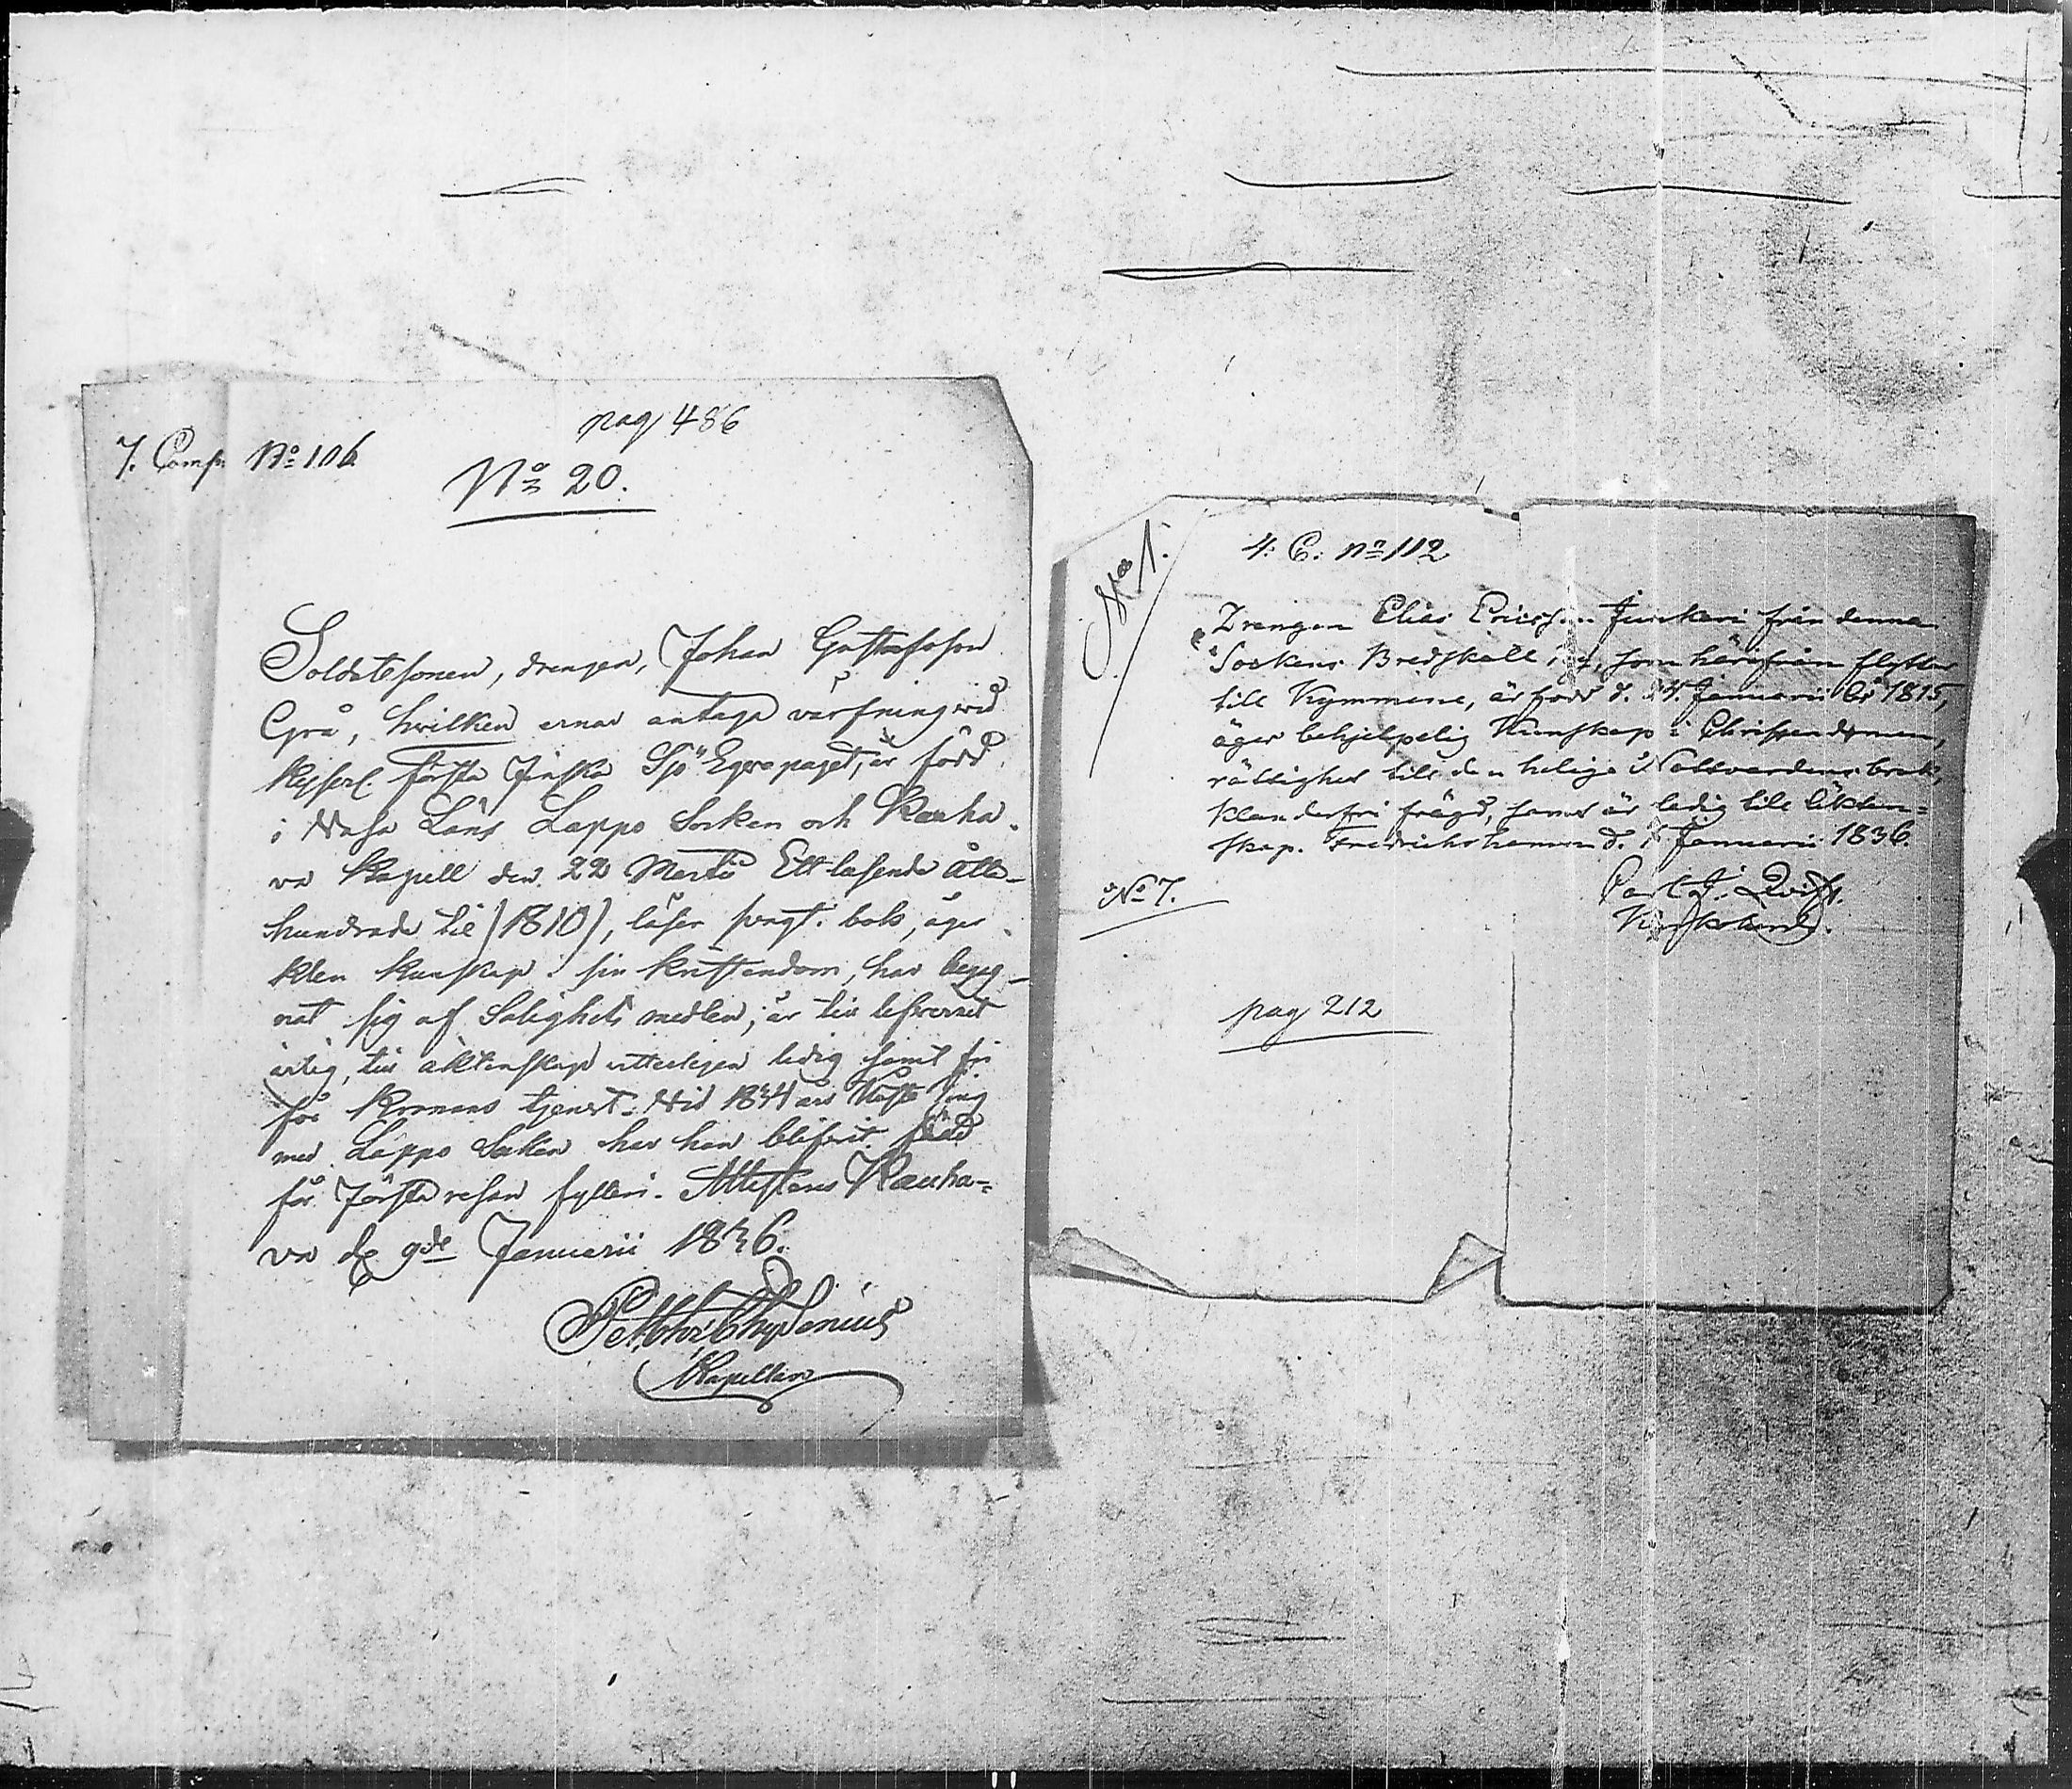 pag 486
7. Comp. No 106
No 20.
Soldatesonen, drengen, Johan Gustafsson
Grå, hvilken ernar antaga värfning vid
Kejserl. första Finska Sjö Eqvipaget, är född
i Wasa Läns Lappo Socken och Kauha-
va Kapell den 22 Martii Ett tusende Åtta-
hundrade tie (1810), läser svagt i bok, äger
klen kunskap i sin kristendom, har begag-
nat sig af Salighets medlen; är till lefvernet
ärlig, till äktenskap vitterligen ledig samt fri
för Kronans tjenst. Vid 1834 års Höste Ting
med Lappo Socken har han blifvit
för Första resan fylleri. Attesteras Kauha-
va d. 9de Januarii 1836.
Chydenius
Kapellan
No 1.
4: C. no 112
Drengen Elias Ericsson Junkari från denna
Sockens Bredskall som härifrån flyttar
till Kymmene, är född d. Januarii år 1815,
äger behjelpelig Kunskap i Christendomen,
rättighet till den heliga Nattvardens bruk,
klanderfri frägd, samt är ledig till äkten-
skap. Fredrichshamn d. Januarii 1836.
Carl J. Qvist.
Kyrkoherde.
No 7.
pag 212